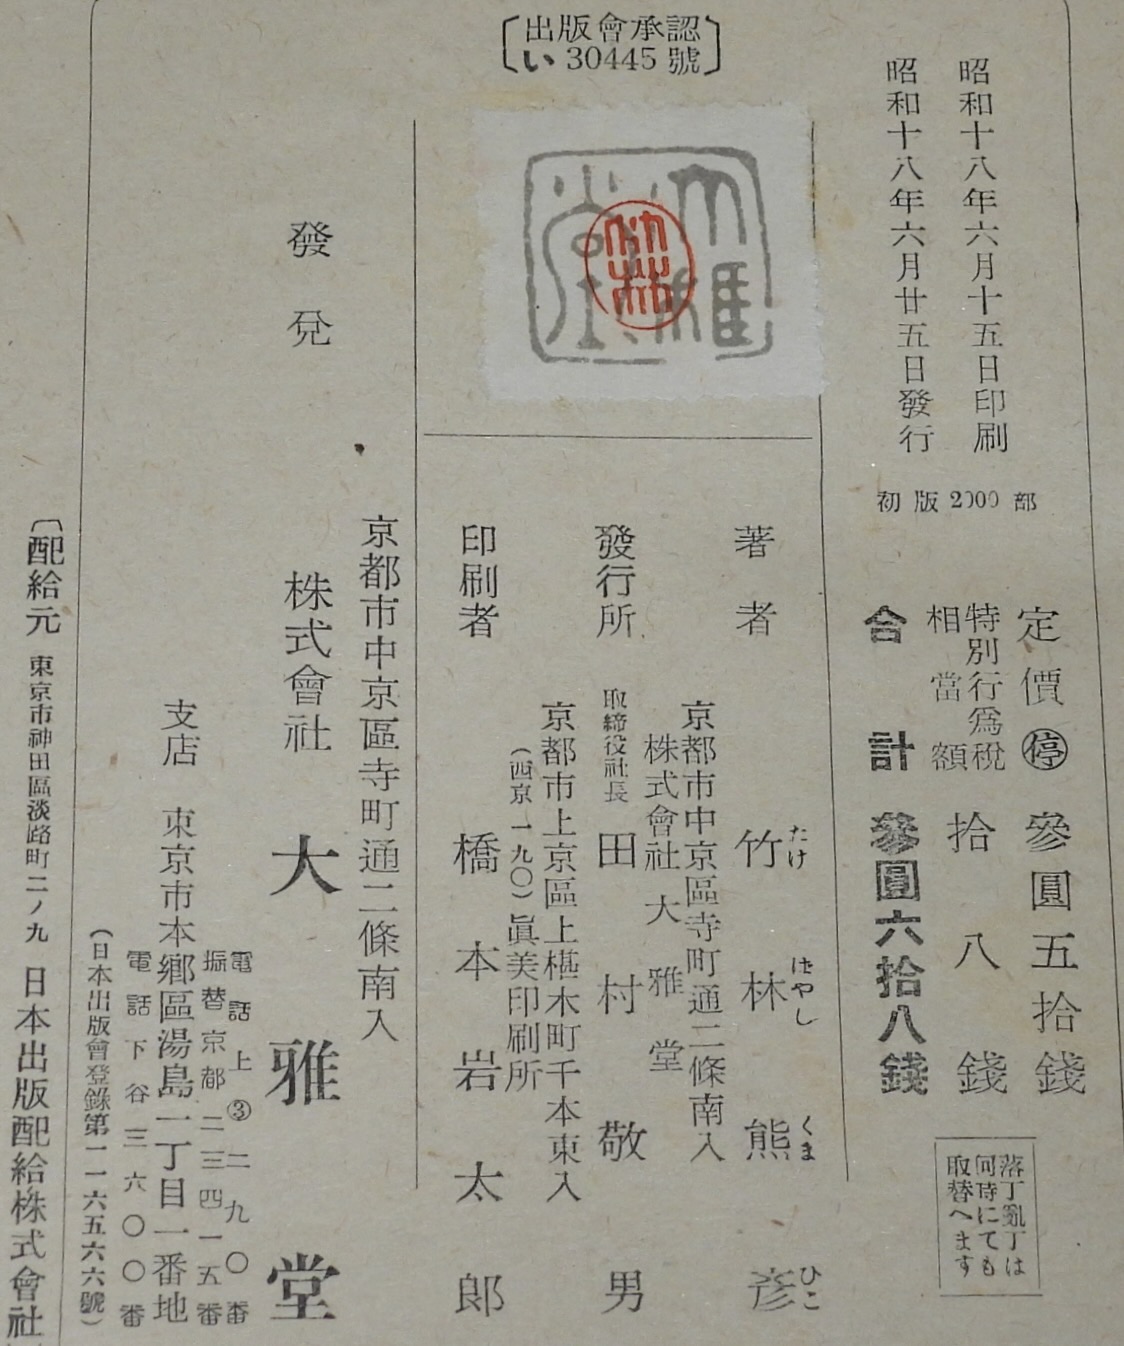 〔出版會承認
い30445號〕
昭和十八年六月十五日印刷
昭和十八年六月廿五日發行
初版2000部
定價㊡參圓五拾錢
特別行爲税
相當額
拾八錢
合計參圓六拾八錢
落丁亂丁は
何時にても
取替へます
著者
竹林熊彥
たけ はやし くま ひこ
京都市中京區寺町通二條南入
株式會社大雅堂
發行所
取締役社長
田村敬男
京都市上京區上椹木町千本東入
(西京一九〇)眞美印刷所
印刷者
橋本岩太郎
京都市中京區寺町通二條南入
發兌
株式會社
大雅堂
電話上③二九〇番
振替京都二三四一五番
支店
東京市本鄉區湯島一丁目一番地
電話下谷三六〇〇番
(日本出版會登錄第一一六五六六號)
〔配給元
東京市神田區淡路町二ノ九
日本出版配給株式會社